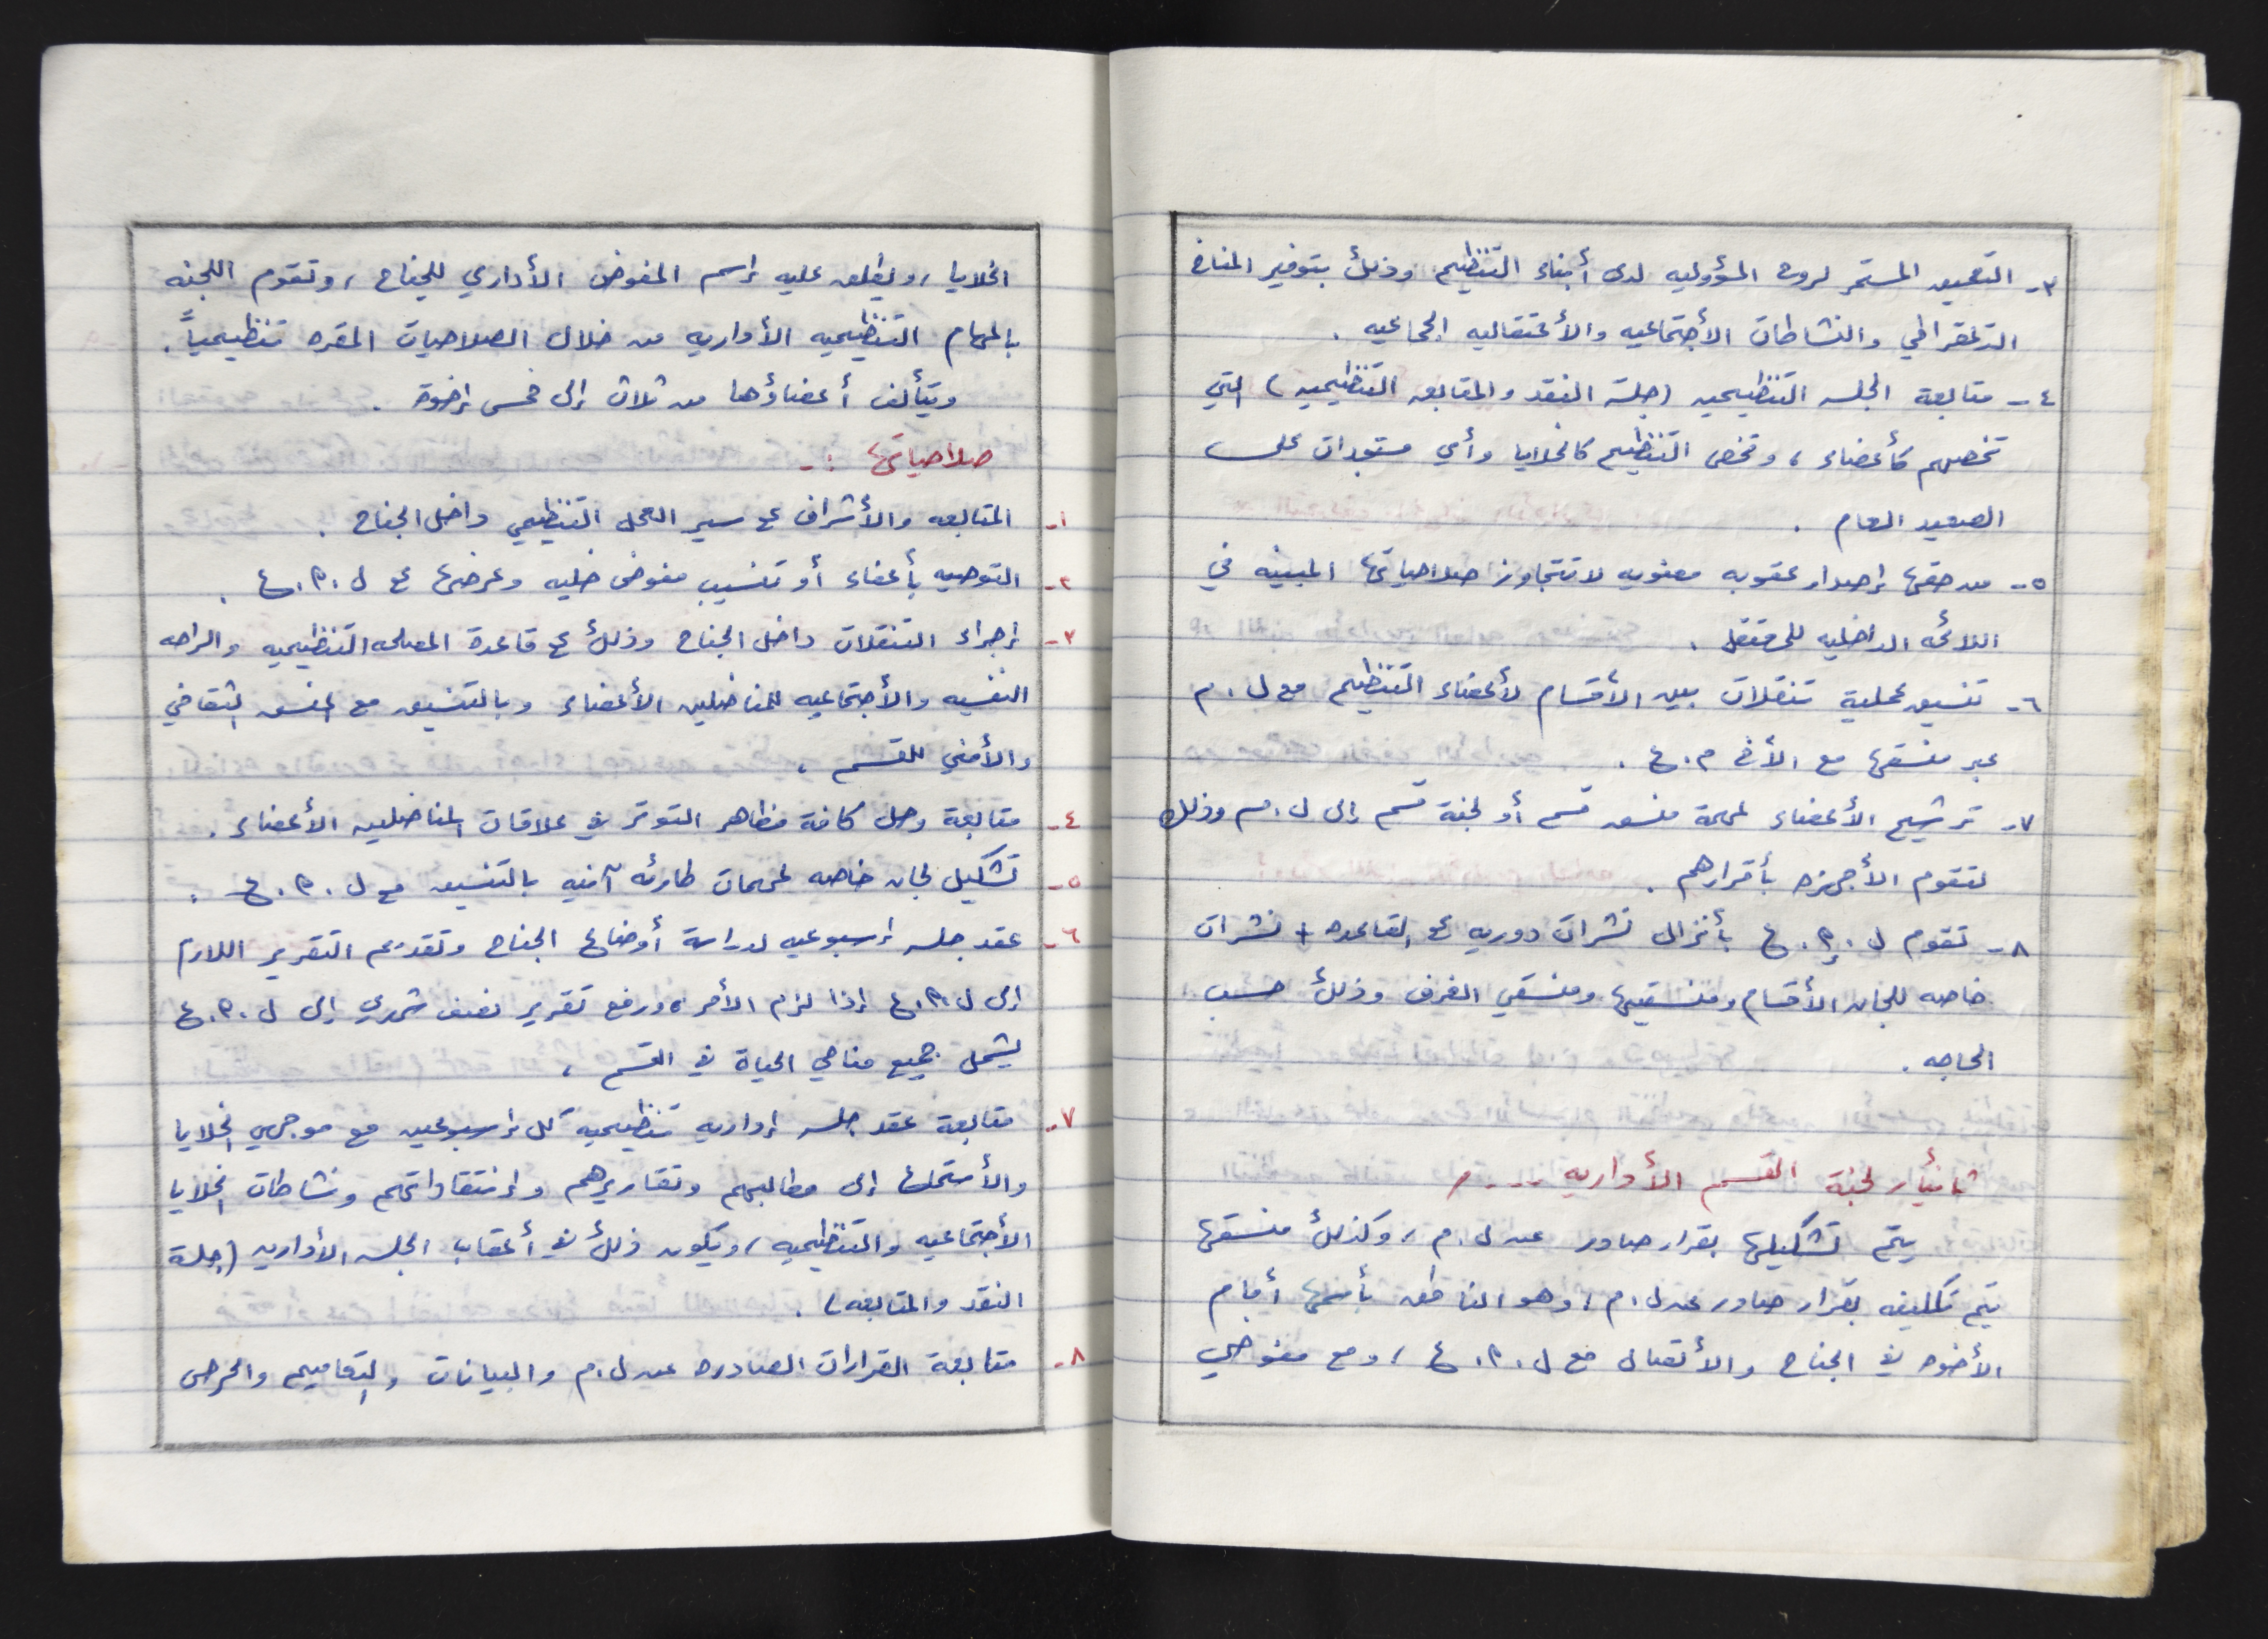 ٣- التعميق المستمر لروح المسؤوليه لدى أبناء التنظيم وذلك بتوفير المناخ
الديمقراطي والنشاطات الأجتماعيه والأعتقاليه الجماعيه .
٤- متابعة الجلسه التنظيميه (جلسة النقد والمتابعه التنظيميه) التي
تخصهم كأعضاء ، وتخص التنظيم كالخلايا وأي مستجدات على
الصعيد العام .
٥- من حقها إصدار عقوبه معنويه لا تتجاوز صلاحياتها المبينه في
اللائحه الداخليه للمعتقل .
٦- تنسيق عملية تنقلات بين الأقسام لأعضاء التنظيم مع ل . م
عبر منسقها مع الأخ م . ع .
٧- ترشيح الأعضاء لمهمة منسق قسم أو لجنة قسم إلى ل . م وذلك
لتقوم الأجهزه بأقرارهم .
٨- تقوم ل . إ . ع بأنزال نشرات دوريه ع القاعده + نشرات
خاصه للجان الأقسام ومنسقيها ومنسقي الغرف وذلك حسب
الحاجه .
ثانياً / لجنة القسم الأداريه ---/
يتم تشكيلها بقرار صادر عن ل . م ، وكذلك منسقها
يتم تكليفه بقرار صادر عن ل . م ، وهو الناطق بأسمها أمام
الأخوه في الجناح والأتصال مع ل . إ . ع ، ومع مفوضي
الخلايا ، ويطلق عليه إسم المفوض الأداري للجناح ، وتقوم اللجنه
بالمهام التنظيميه الأداريه من خلال الصلاحيات المقره تنظيمياً .
ويتألف أعضاؤها من ثلاث إلى خمس إخوة .
صلاحياتها :-
١- المتابعه والأشراف ع سير العمل التنظيمي داخل الجناح .
٢- التوصيه بأعفاء أو تنسيب مفوض خليه وعرضها ع ل . إ . ع .
٣- إجراء التنقلات داخل الجناح وذلك ع قاعدة المصلحه التنظيميه والراحه
النفسيه والأجتماعيه للمناضلين الأعضاء وبالتنسيق مع المنسق الثقافي
والأمني للقسم .
٤- متابعة وحل كافة مظاهر التوتر في علاقات المناضلين الأعضاء .
٥- تشكيل لجان خاصه لمهمات طارئه آنيه بالتنسيق مع ل . إ . ع .
٦- عقد جلسه إسبوعيه لدراسة أوضاع الجناح وتقديم التقرير اللازم
إلى ل . إ . ع إذا لزم الأمر ، ورفع تقرير نصف شهري إلى ل . إ . ع
يشمل جميع مناحي الحياة في القسم .
٧- متابعة عقد جلسه إداريه تنظيمية كل إسبوعين مع موجهي الخلايا
والأستماع إلى مطالبهم وتقاريرهم وإنتقاداتهم ونشاطات الخلايا
الأجتماعيه والتنظيميه ، ويكون ذلك في أعقاب الجلسه الأداريه (جلسة
النقد والمتابعه) .
٨- متابعة القرارات الصادره عن ل . م والبيانات والتعاميم والحرص